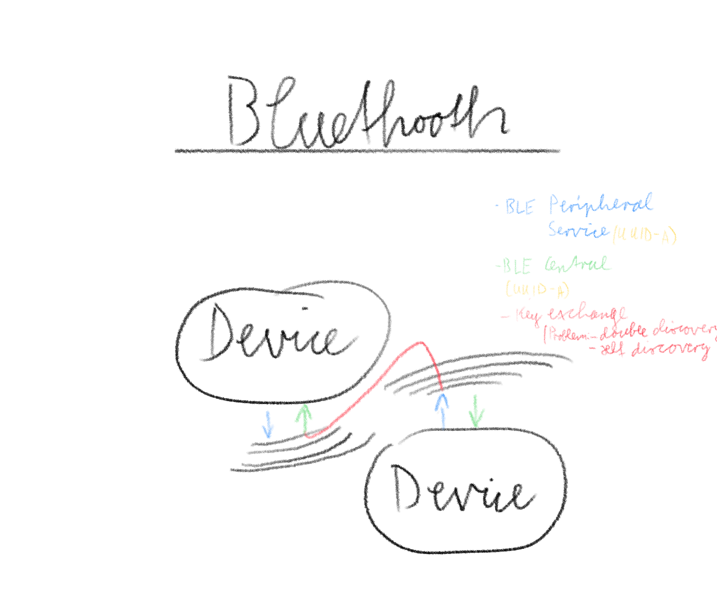 Bluethooth
- BLE Peripheral
Service (UUID-A)
- BLE Central
(UUID-A)
- Key exchange
(Problem: - double discovery
- self discovery
Device
Device